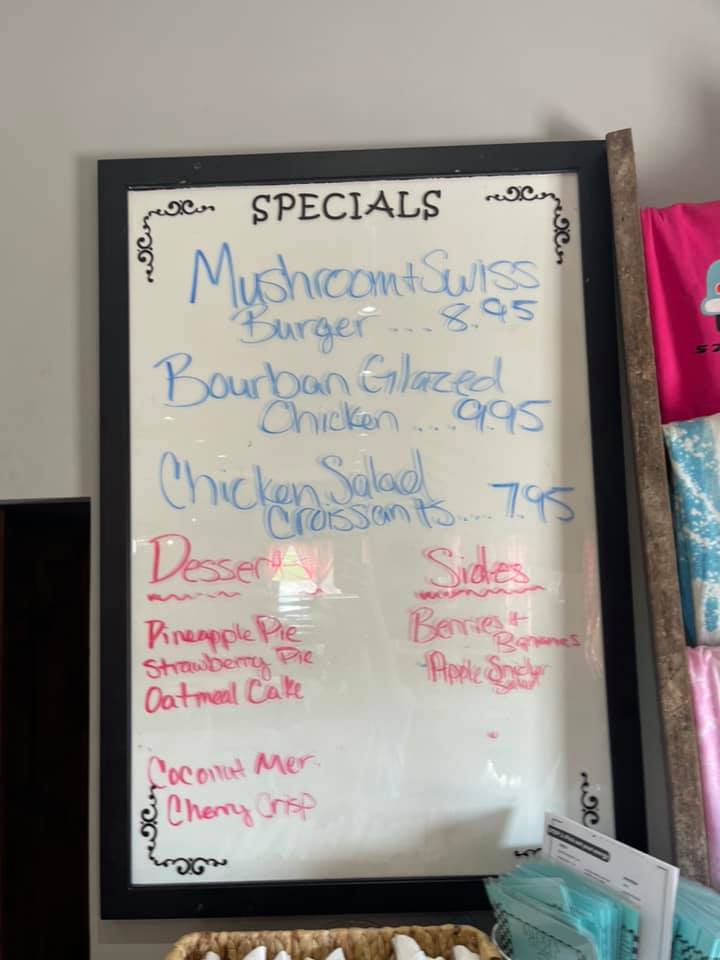 SPECIALS
Mushroom + Swiss
Burger ... 8.95
Bourban Glazed
Chicken .... 9.95
Chicken Salad
Croissants .... 7.95
Dessert
Pineapple Pie
Strawberry Pie
Oatmeal Cake
Coconut Mer.
Cherry Crisp
Sides
Berries +
Bananas
-Apple Snicker
Salad